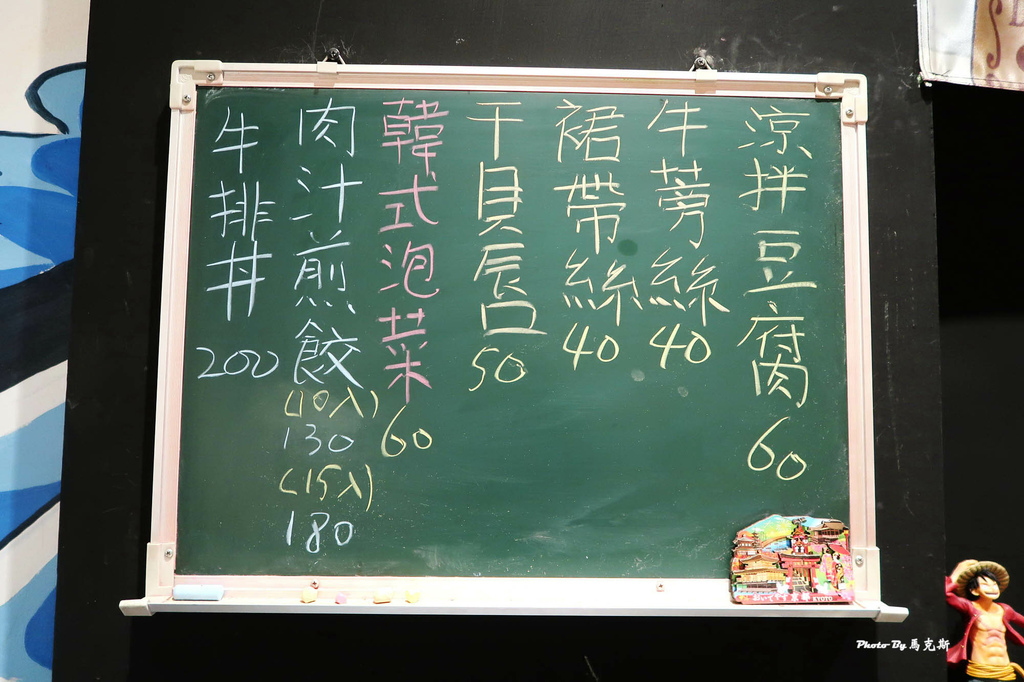 涼拌豆腐肉
60
牛蒡絲
40
裙帶絲
40
干貝唇
50
韓式泡菜
60
肉汁煎餃
(10入)
130
(15入)
180
牛排丼
200
KYOTO
Photo By 馬克斯